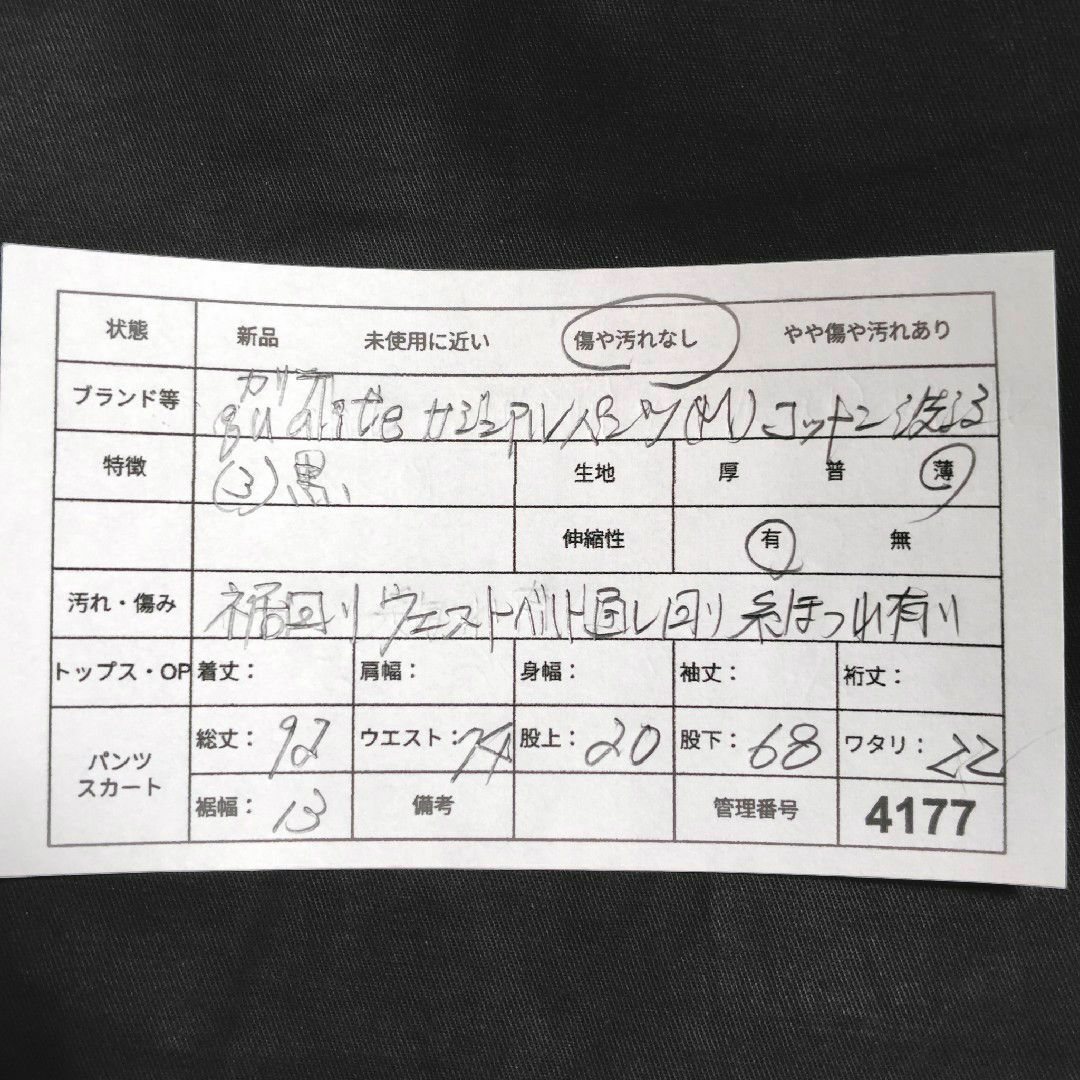 状態 新品 未使用に近い 傷や汚れなし やや傷や汚れあり
ブランド等 qualite カジュアルパンツ(M) コットン 洗える
特徴 (3)黒 生地 厚 普 薄
伸縮性 有 無
汚れ・傷み 裾回り ウエストベルト通し回り 糸ほつれ有り
トップス・OP 着丈: 肩幅: 身幅: 袖丈: 裄丈:
パンツ スカート 総丈: 92 ウエスト: 74 股上: 20 股下: 68 ワタリ: 22
裾幅: 13 備考 管理番号 4177